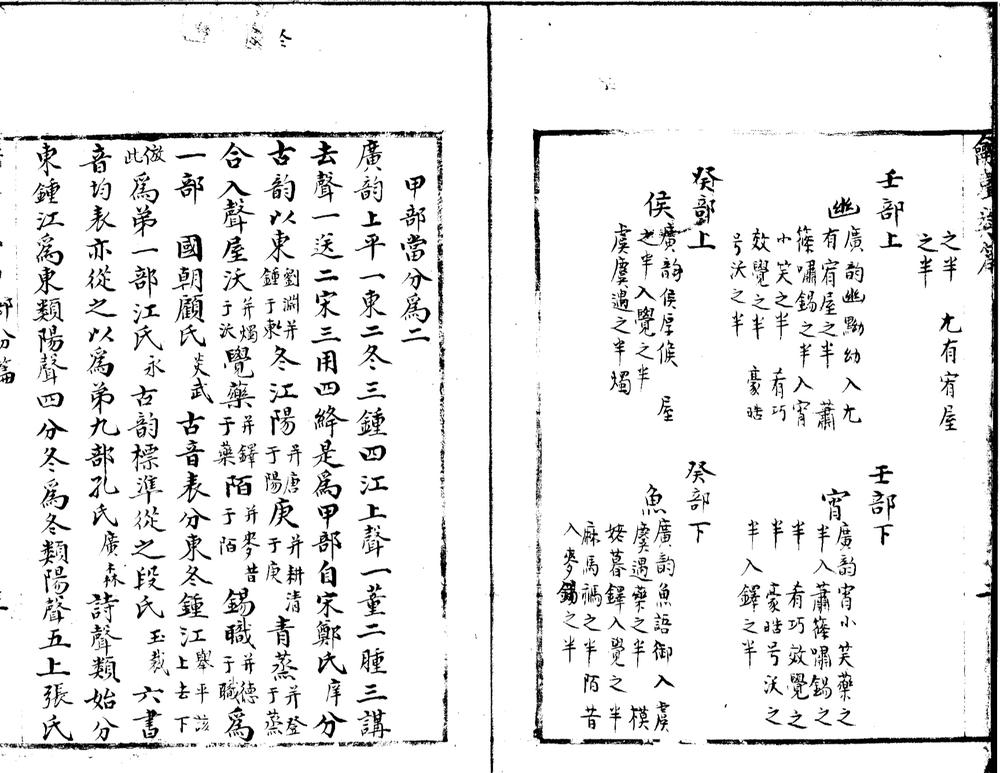 之半　尤有宥屋
之半
壬部上
幽廣韵幽黝幼入尤
有宥屋之半　蕭
篠嘯錫之半入宵
小笑之半　肴巧
效覺之半　豪晧
号沃之半
壬部下
宵廣韵宵小笑藥之
半入蕭篠嘯錫之
半　肴巧效覺之
半　豪晧号沃之
半入鐸之半
癸部上
侯廣韵侯厚候　屋
之半入覺之半
虞麌遇之半燭
癸部下
魚廣韵魚語御入虞
麌遇藥之半　模
姥暮鐸入覺之半
麻馬禡之半陌昔
入麥錫之半
甲部當分爲二
廣韵上平一東二冬三鍾四江上聲一董二腫三講
去聲一送二宋三用四絳是爲甲部自宋鄭氏庠分
古韵以東劉淵并鍾于東冬江陽并唐于陽庚并耕清于庚青蒸并登于蒸
合入聲屋沃并燭于沃覺藥并鐸于藥陌并麥昔于陌錫職并德于職爲
一部　國朝顧氏炎武古音表分東冬鍾江舉平該上去下
倣此爲弟一部江氏永古韵標準從之段氏玉裁六書
音均表亦從之以爲弟九部孔氏廣森詩聲類始分
東鍾江爲東類陽聲四分冬爲冬類陽聲五上張氏